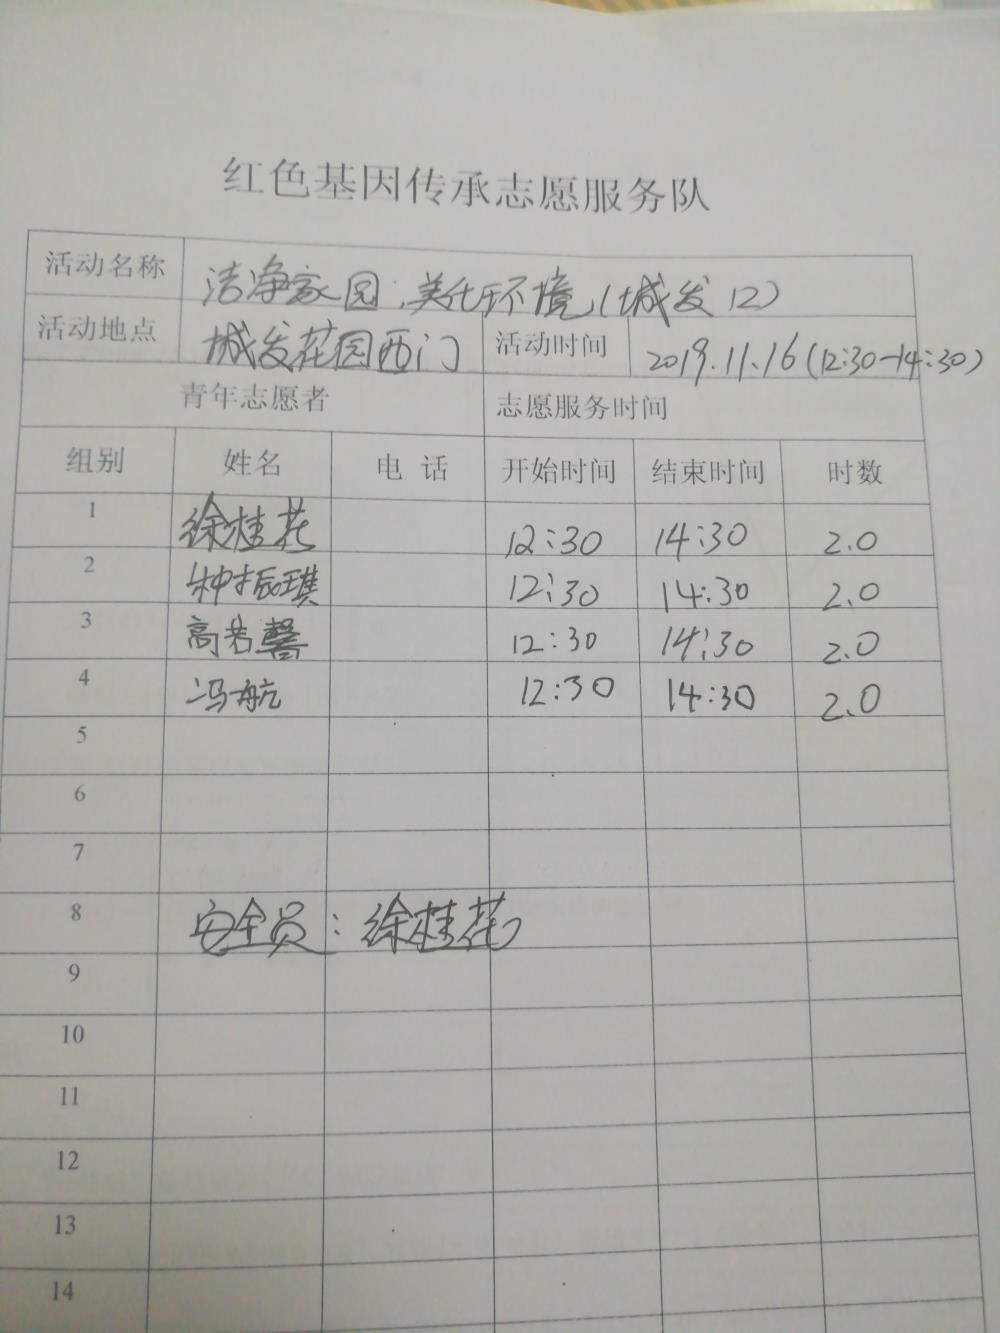 红色基因传承志愿服务队
活动名称 洁净家园,美化环境(城发12)
活动地点 城发花园西门 活动时间 2019.11.16(12:30-14:30)
青年志愿者 志愿服务时间
组别 姓名 电 话 开始时间 结束时间 时数
1 徐桂花 12:30 14:30 2.0
2 种振琪 12:30 14:30 2.0
3 高若馨 12:30 14:30 2.0
4 冯航 12:30 14:30 2.0
5
6
7
8 安全员:徐桂花
9
10
11
12
13
14